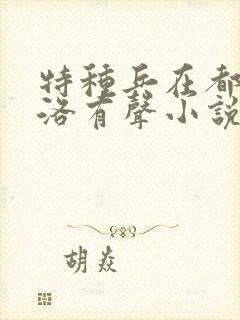 特種兵在都
洛有聲小說
胡焱